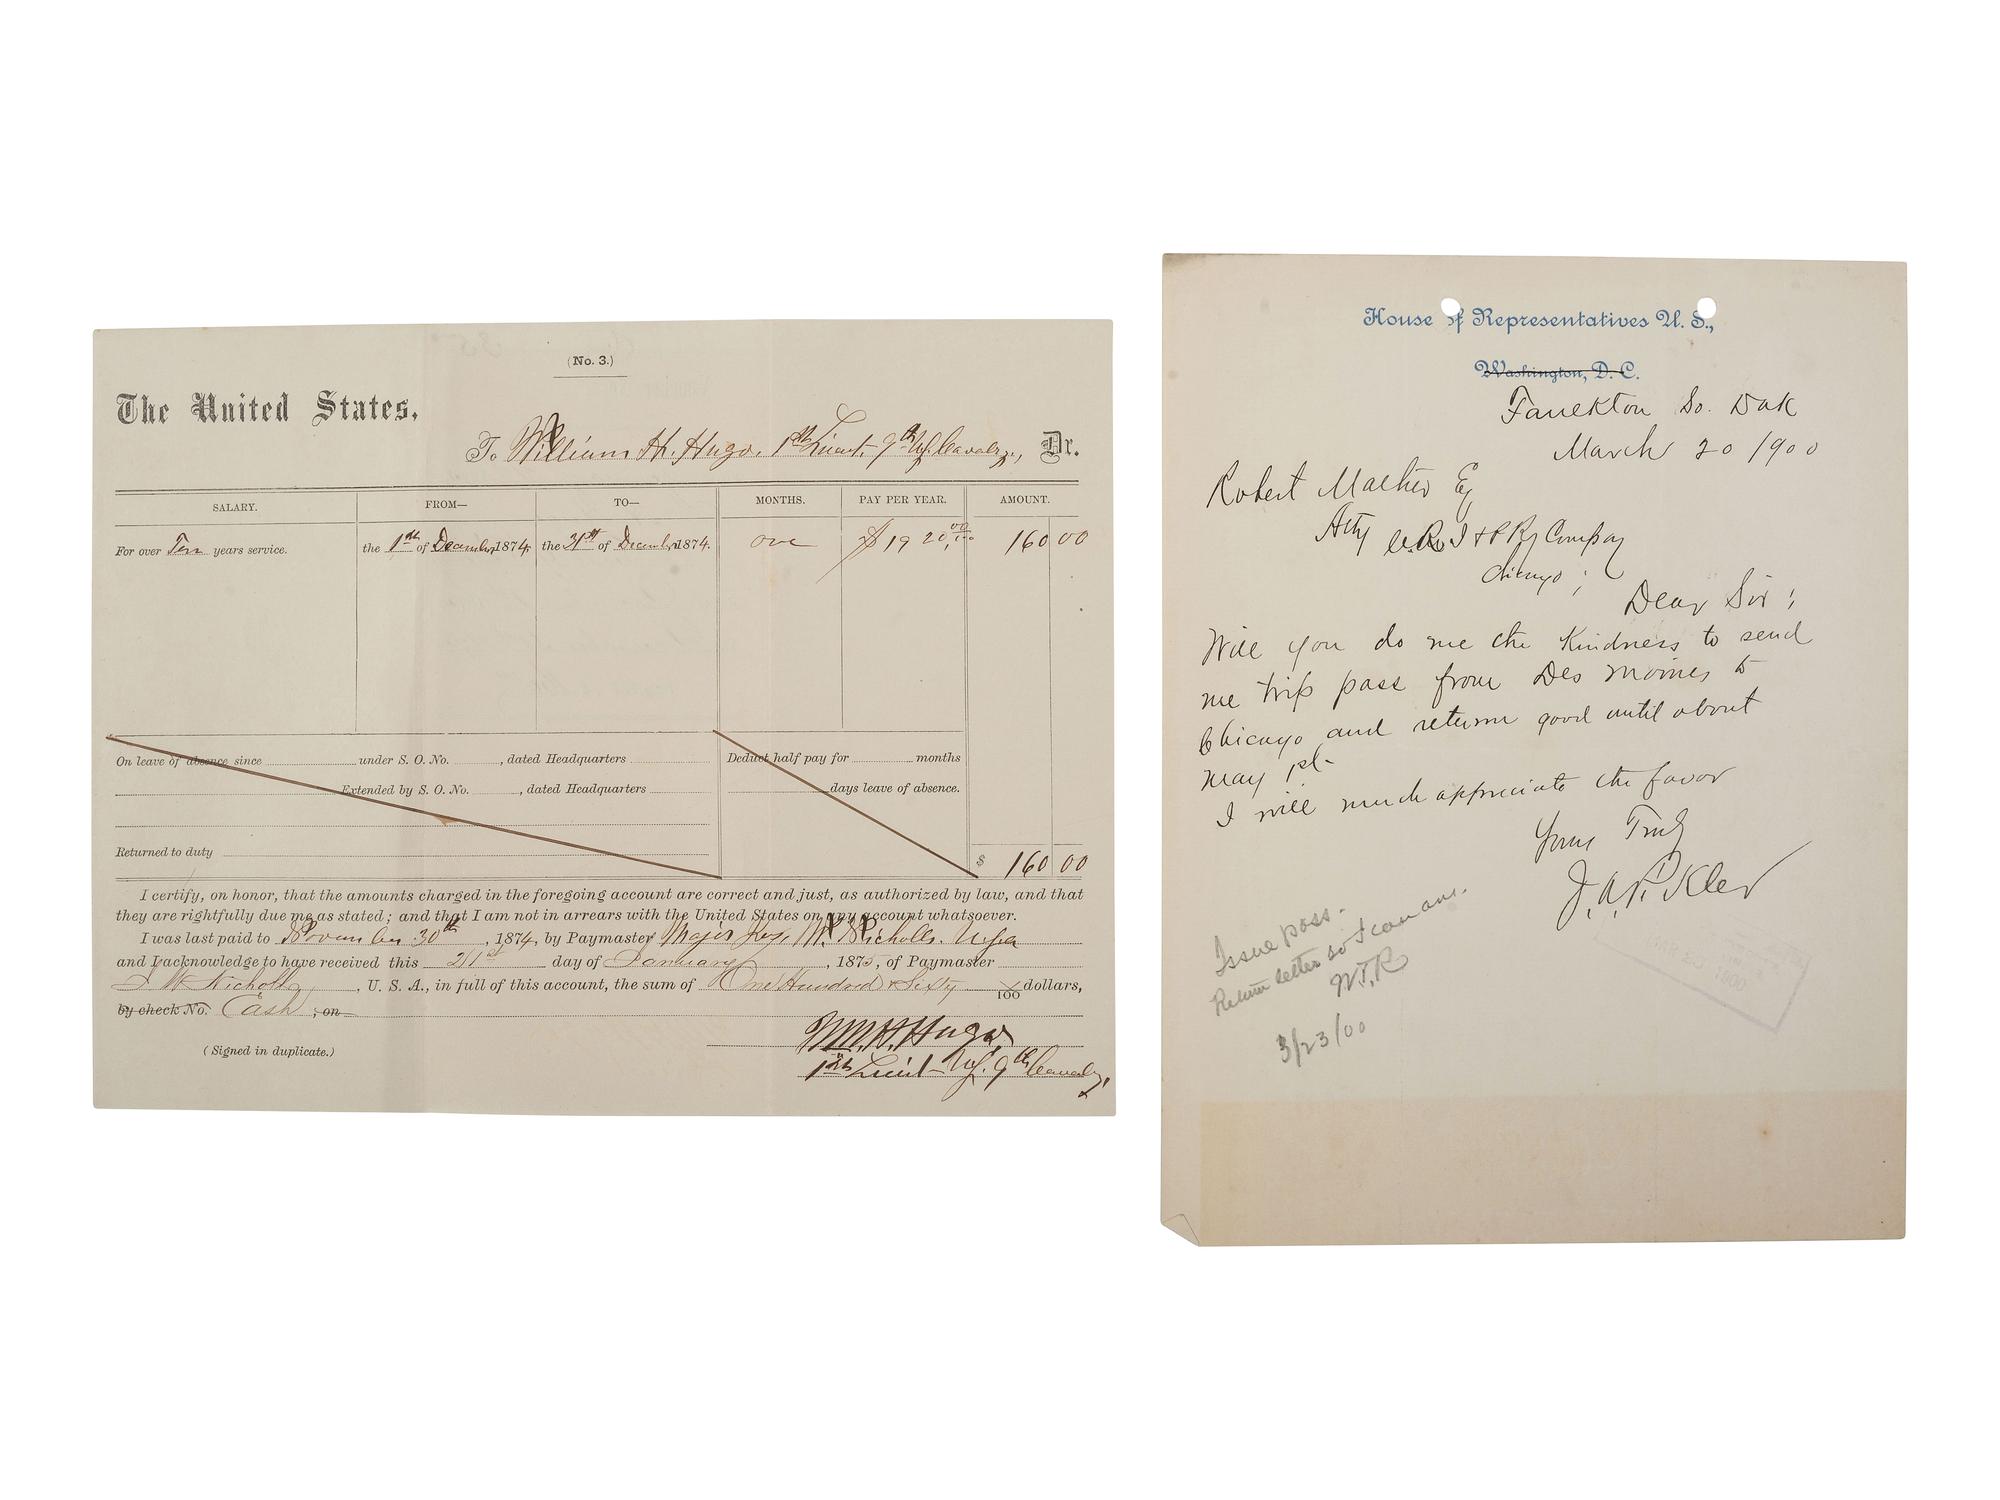 (No. 3.)
The United States,
To William H. Hugo. 1st Lieut. 9th U.S. Cavalry, Dr.
SALARY. FROM— TO— MONTHS. PAY PER YEAR. AMOUNT.
For over Ten years service. the 1st of December 1874, the 31st of December 1874. one $1920.00 160 00
On leave of absence since under S. O. No. , dated Headquarters
Extended by S. O. No. , dated Headquarters
Returned to duty
Deduct half pay for months
days leave of absence.
$ 160 00
I certify, on honor, that the amounts charged in the foregoing account are correct and just, as authorized by law, and that
they are rightfully due me as stated; and that I am not in arrears with the United States on any account whatsoever.
I was last paid to November 30th, 1874, by Paymaster Major Nicholls. USA
and I acknowledge to have received this 21st day of January, 1875, of Paymaster
Nicholls, U. S. A., in full of this account, the sum of One Hundred & Sixty x/100 dollars,
by check No. Cash, on
(Signed in duplicate.)
Wm. H. Hugo,
1st Lieut U.S. 9th Cavalry,
House of Representatives U. S.,
Washington, D. C.
Faulkton So. Dak
March 20 1900
Robert Mather Eq
Atty C. R. I & P Ry Company
Chicago ;
Dear Sir ;
Will you do me the Kindness to send
me trip pass from Des Moines to
Chicago and return good until about
May 1st-
I will much appreciate the favor
Yours Truly
J. A. Pickler
Issue pass.
Return letter so I can ans.
W.T.R
3/23/00